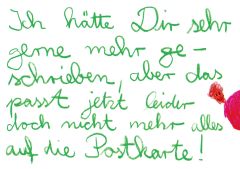 Ich hätte Dir sehr
gerne mehr ge-
schrieben, aber das
passt jetzt leider
doch nicht mehr alles
auf die Postkarte!